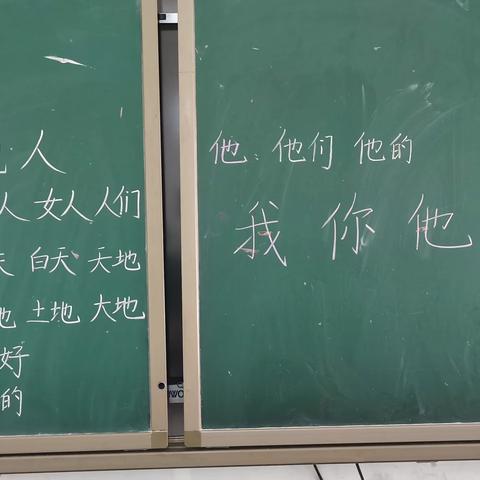 人
人 女人 人们
天 白天 天地
地 土地 大地
好
的
他：他们 他的
我 你 他